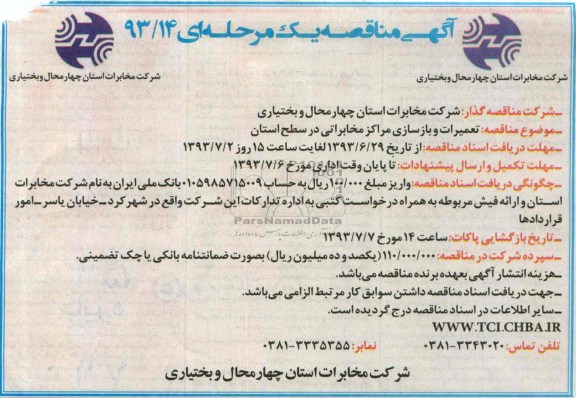 آگهی مناقصه یک مرحله‌ای ۹۳/۱۴
شرکت مخابرات استان چهارمحال و بختیاری
شرکت مخابرات استان چهارمحال و بختیاری
ـ شرکت مناقصه گذار: شرکت مخابرات استان چهارمحال و بختیاری
ـ موضوع مناقصه: تعمیرات و بازسازی مراکز مخابراتی در سطح استان
ـ مهلت دریافت اسناد مناقصه: از تاریخ ۱۳۹۳/۶/۲۹ لغایت ساعت ۱۵ روز ۱۳۹۳/۷/۲
ـ مهلت تکمیل و ارسال پیشنهادات: تا پایان وقت اداری مورخ ۱۳۹۳/۷/۶
ـ چگونگی دریافت اسناد مناقصه: واریز مبلغ ۱۰۰/۰۰۰ ریال به حساب ۰۱۰۵۹۸۵۷۱۵۰۰۹ بانک ملی ایران به نام شرکت مخابرات
استان و ارائه فیش مربوطه به همراه درخواست کتبی به اداره تدارکات این شرکت واقع در شهرکرد ـ خیابان یاسر ـ امور
قراردادها
ParsNamadData
ـ تاریخ بازگشایی پاکات: ساعت ۱۴ مورخ ۱۳۹۳/۷/۷
ـ سپرده شرکت در مناقصه: ۱۱۰/۰۰۰/۰۰۰ (یکصد و ده میلیون ریال) بصورت ضمانتنامه بانکی یا چک تضمینی.
ـ هزینه انتشار آگهی بعهده برنده مناقصه می‌باشد.
ـ جهت دریافت اسناد مناقصه داشتن سوابق کار مرتبط الزامی می‌باشد.
ـ سایر اطلاعات در اسناد مناقصه درج گردیده است.
WWW.TCI.CHBA.IR
تلفن تماس: ۳۳۴۳۰۲۰-۰۳۸۱ نمابر: ۳۳۳۵۳۵۵-۰۳۸۱
شرکت مخابرات استان چهارمحال و بختیاری